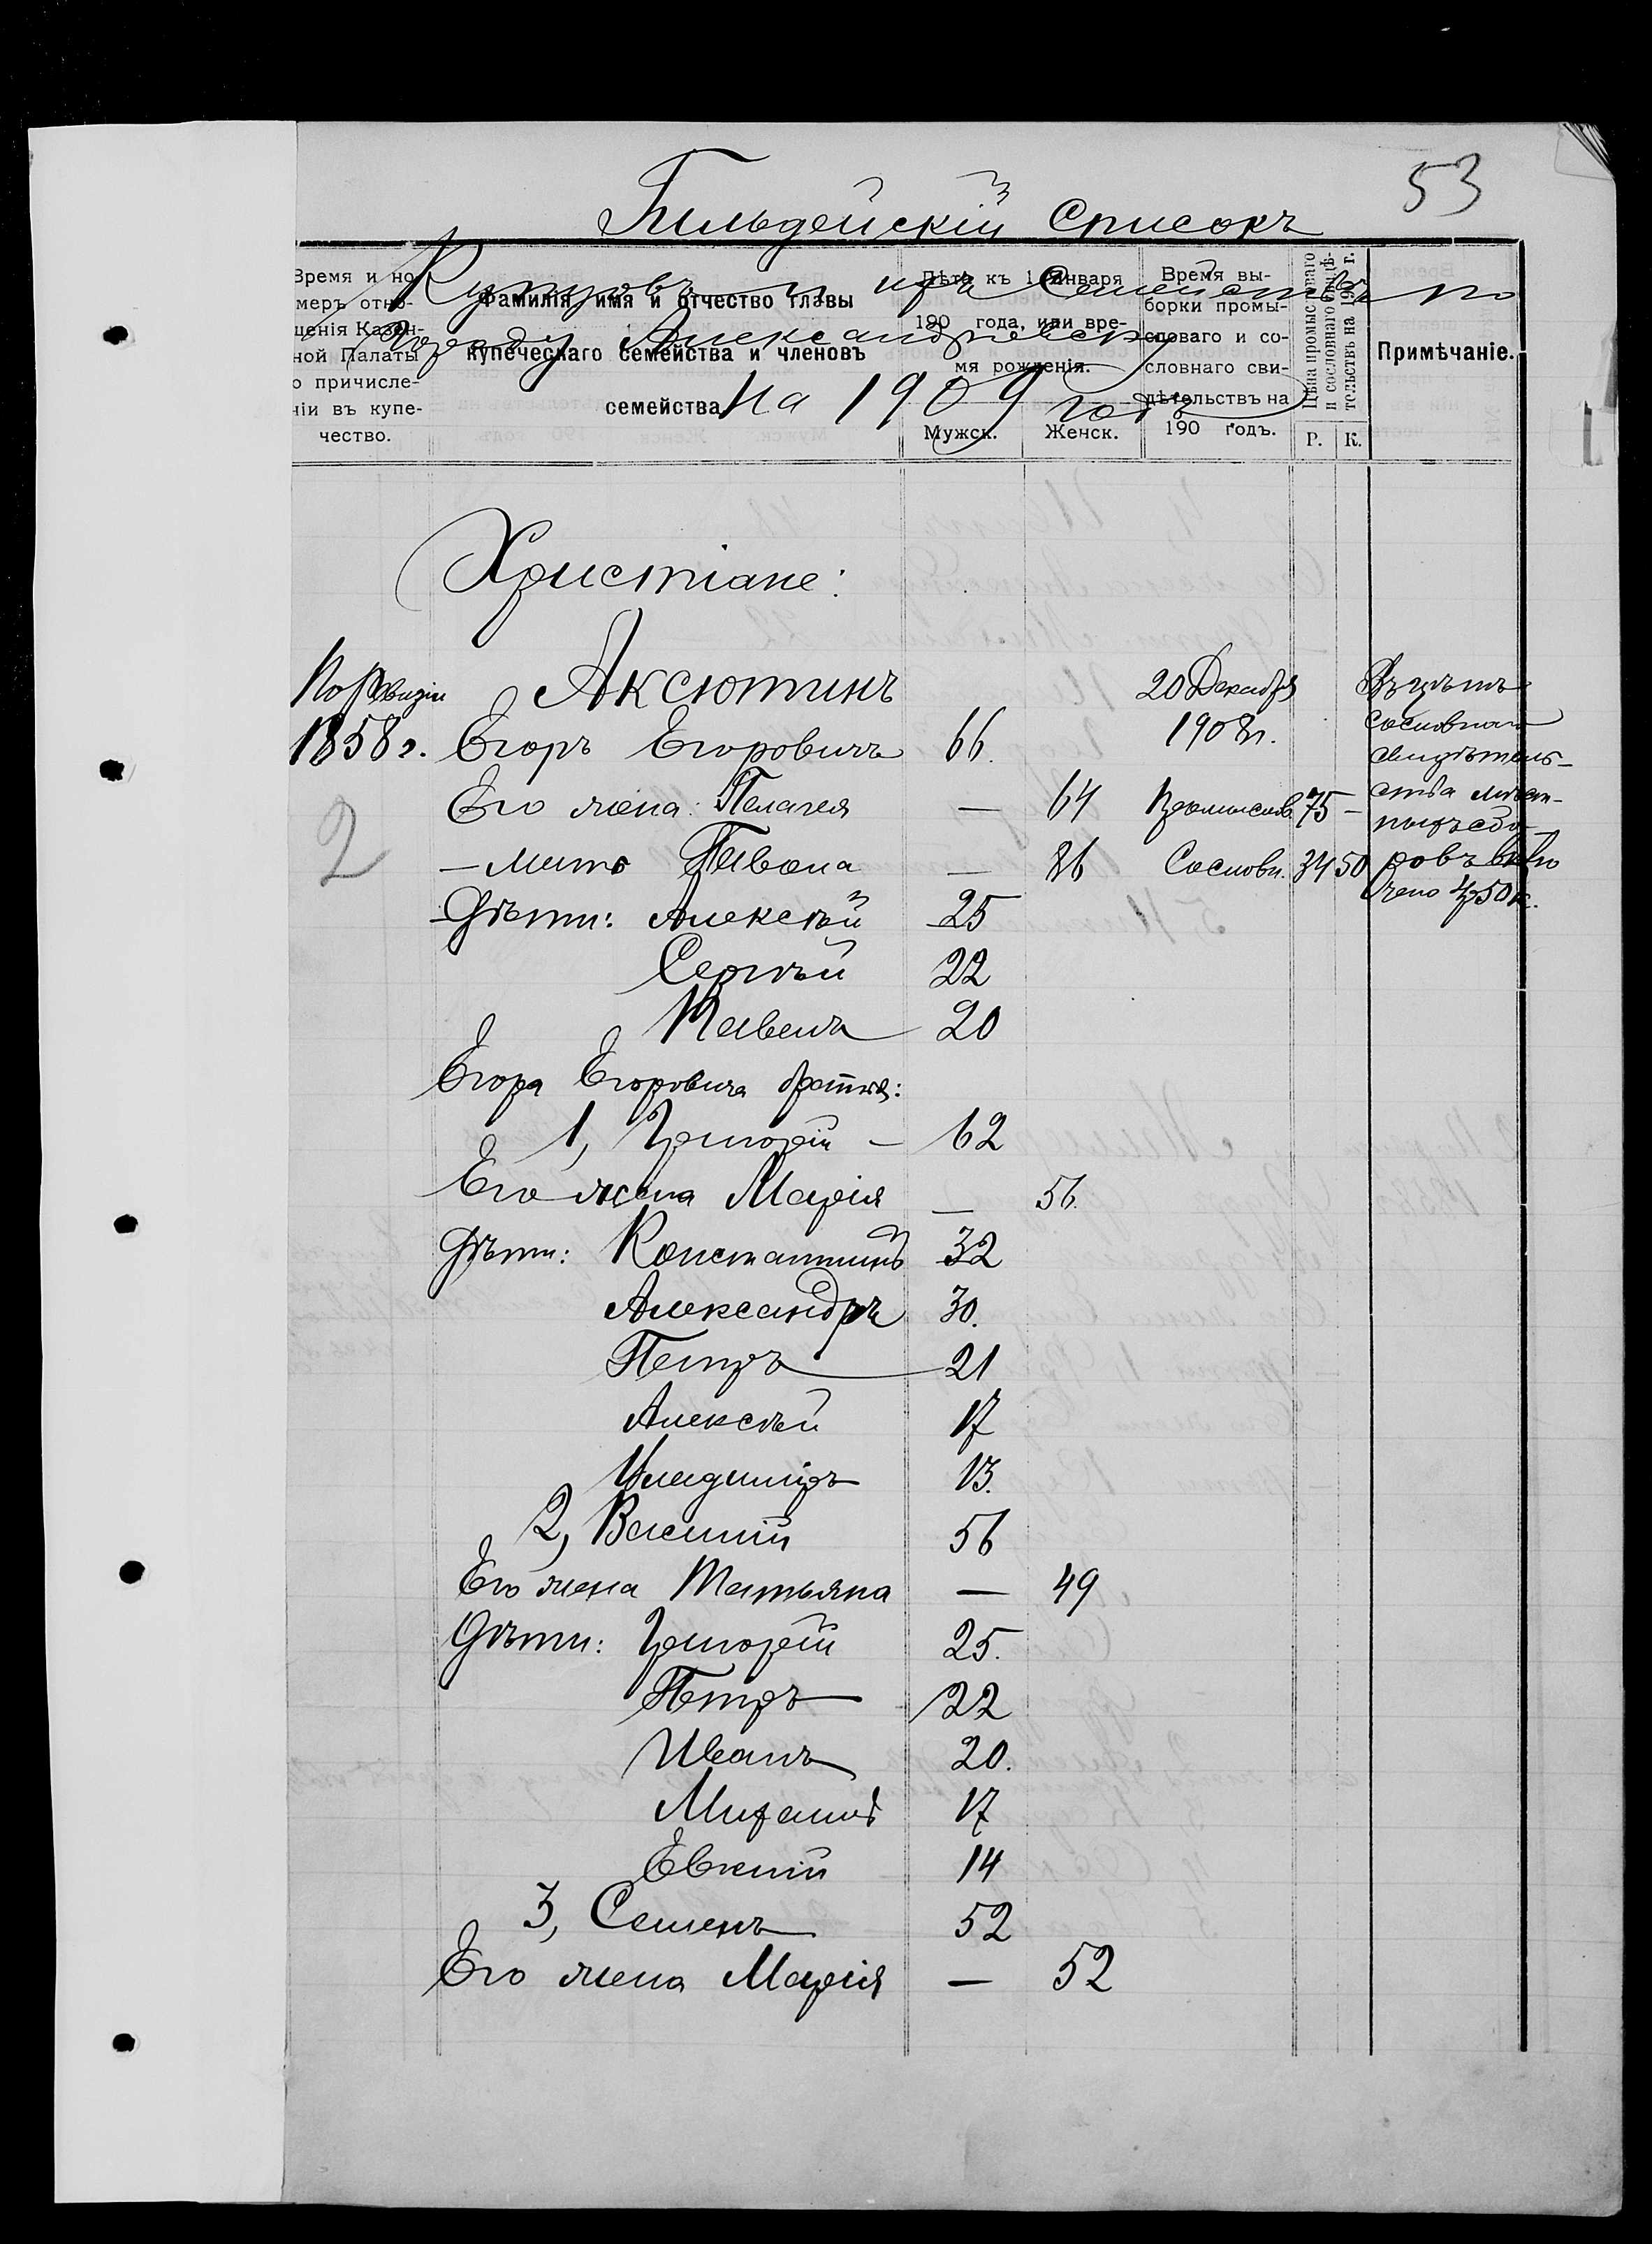 53
Гильдейскій Списокъ
Купцовъ и ихъ Семействъ по
Городу Александровску
На 1909 годъ
Время и но-
меръ отно-
шенія Казен-
ной Палаты
о причисле-
ніи въ купе-
чество.
Фамилія, имя и отчество главы
купеческаго семейства и членовъ
семейства
Лѣта къ 1 Января
190 года, или вре-
мя рожденія.
Мужск. Женск.
Время вы-
борки промы-
словаго и со-
словнаго сви-
дѣтельствъ на
190 годъ.
Цѣна промысловаго
и сословнаго свидѣ-
тельствъ на 190 г.
Р. К.
Примѣчаніе.
Христіане:
По Ревизіи Аксютинъ 20 Декабря Въ цѣнѣ
1858 г. Егоръ Егоровичъ 66. 1908 г. сословнаго
свидѣтель-
Его жена: Пелагея — 64 Промыслов. 75 — ства мѣст-
ныхъ сбо-
2 — мать Павона — 86 Сословн. 34 50 ровъ вклю
чено 4р50к.
Дѣти: Алексѣй 25
Сергѣй 22
Павелъ 20
Егора Егоровича братья:
1, Григорій — 62
Его жена Марія — 56.
Дѣти: Константинъ 32
Александръ 30.
Петръ 21
Алексѣй 17
Владиміръ 13.
2, Василій 56
Его жена Татьяна — 49
Дѣти: Григорій 25.
Петръ 22
Иванъ 20.
Михаилъ 17
14
3, Семенъ 52
Его жена Марія — 52